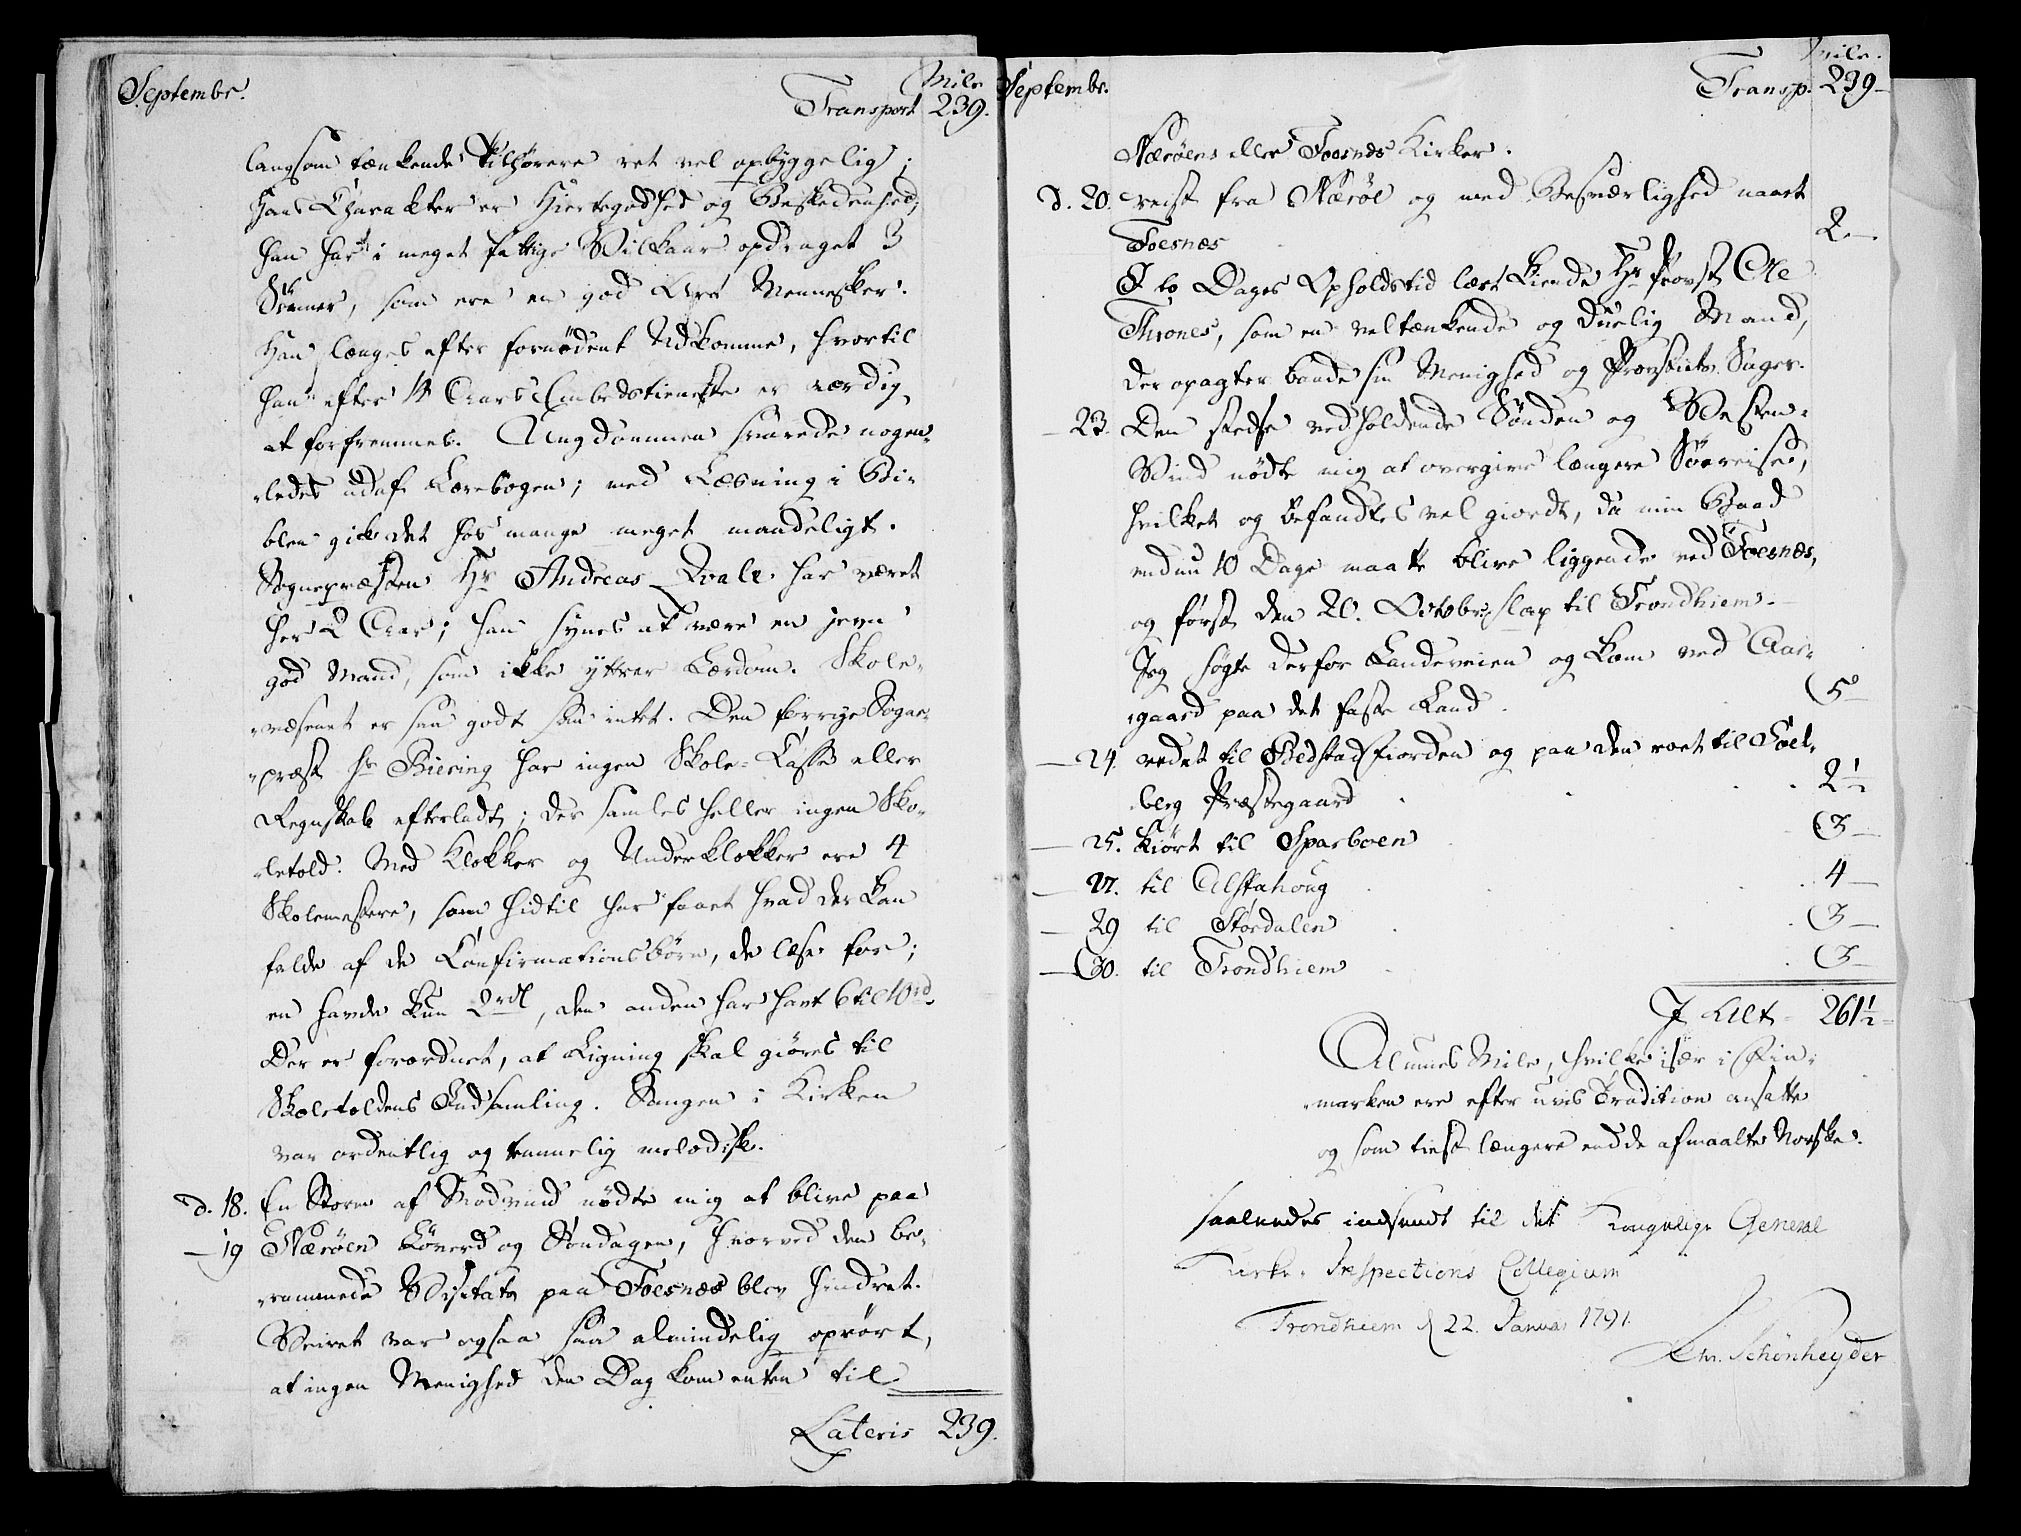 Septembr.
Mile
Transport 239.
langsom tænkende Tilhørere ret vel opbyggelig;
Hans Charakter er Hiertegodhed og Beskedenhed;
han har i meget fattige Vilkaar opdraget 3
Sønner, som ere en god Art Mennesker.
Han længes efter fornødent Udkomme, hvortil
han efter 14 Aars Embedstieneste er værdig
at forfremmes. Ungdommen svarede nogen-
-ledes udaf Lærebogen; med Læsning i Bi-
blen gik det hos mange meget maadeligt.
Sognepræsten Hr Andreas Qvale har været
her 2 Aar; han synes at være en jevn
god Mand, som ikke yttrer Lærdom. Skole-
-væsenet er saa godt som intet. Den forrige Sogne-
-præst Hr Biering har ingen Skole-Casse eller
Regnskab efterladt; der samles heller ingen Sko-
-letold. Med Klokker og Underklokker ere 4
Skolemestere, som hidtil har faaet hvad der kan
falde af de Confirmationsbørn, de læse for;
en havde kun 2 rdl, den anden har havt 6 til 10 rd.
Der er forordnet, at Ligning skal giøres til
Skoletoldens Indsamling. Sangen i Kirken
var ordentlig og temmelig melodisk.
d. 18. En Storm af Modvind nødte mig at blive paa
— 19 Nærøen Løverd og Søndagen, hvorved den be-
-rammede Visitats paa Foesnæs blev hindret.
Veiret var ogsaa saa almindelig oprørt,
at ingen Menighed den Dag kom enten til
Lateris 239.
Septembr.
Mile.
Transp. 239
Nærøens eller Foesnæs Kirker.
d. 20. reist fra Nærøe og med Besværlighed naaet
Foesnæs 2
I to Dages Opholdstid lært kiende Hr Provst Ole
Thrones, som en veltænkende og duelig Mand,
der opagter baade sin Menighed og Provstiets Sager.
— 23. Den stedse vedholdende Sønden og Vesten-
Vind nødte mig at overgive længere Søereise,
hvilket og befandtes vel giordt, da min Baad
endnu 10 Dage maatte blive liggende ved Foesnæs,
og først den 20. Octobr. slap til Trondhiem.
Jeg søgte derfor Landeveien og kom ved Aar-
-gaard paa det faste Land. 5
— 24. redet til Bedstadfiorden og paa den roet til Soel-
-berg Præstegaard 2 1/2
— 25. kiørt til Sparboen 3
— 27. til Alstahoug 4
— 29 til Størdalen 3
— 30. til Trondhiem 3
I Alt 261 1/2
Alunes Mile, hvilke især i Fin-
-marken ere efter uvis Tradition ansatte
og som tiest længere end de afmaalte Norske.
saaledes indsendt til det Kongelige General
Kirke-Inspections Collegium
Trondhiem d 22. Januar 1791.
Chr. Schønheyder